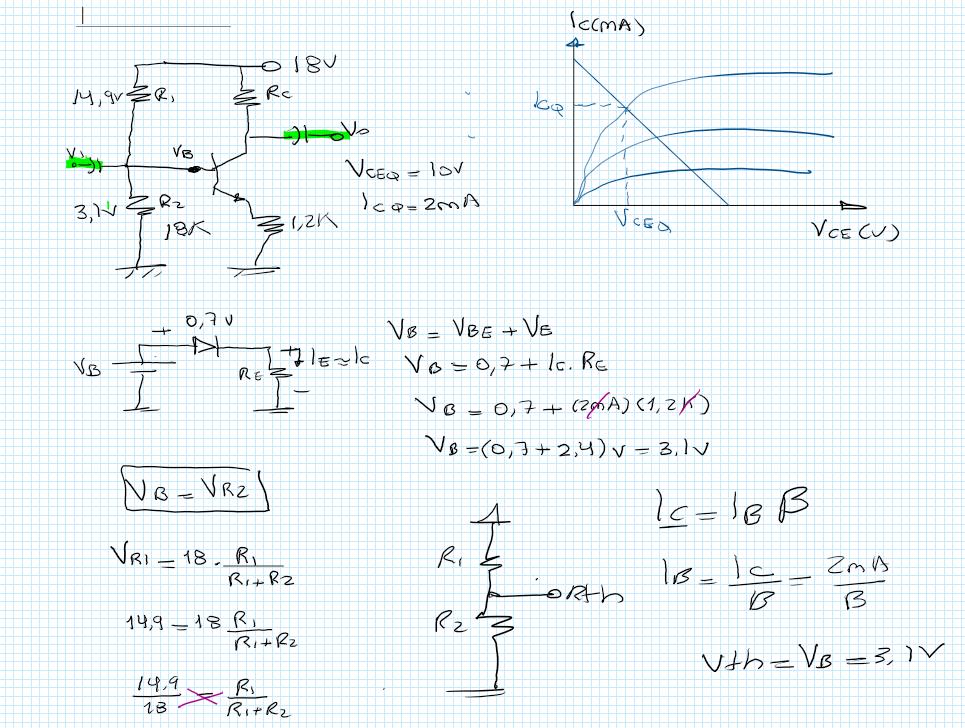 18V
14,9V R1 RC
Vi VB Vo
3,1V R2
18K
1,2K
VCEQ = 10V
ICQ = 2mA
IC(mA)
ICQ
VCEQ
VCE(V)
+ 0,7V
VB
RE
+
-
IE≈IC
VB = VBE + VE
VB = 0,7 + IC. RE
VB = 0,7 + (2mA)(1,2K)
VB = (0,7 + 2,4)V = 3,1V
VB = VR2
VR1 = 18 . R1 / R1+R2
14,9 = 18 R1 / R1+R2
14,9 / 18 = R1 / R1+R2
R1
Rth
R2
IC = IB β
IB = IC / B = 2mA / B
Vth = VB = 3,1V